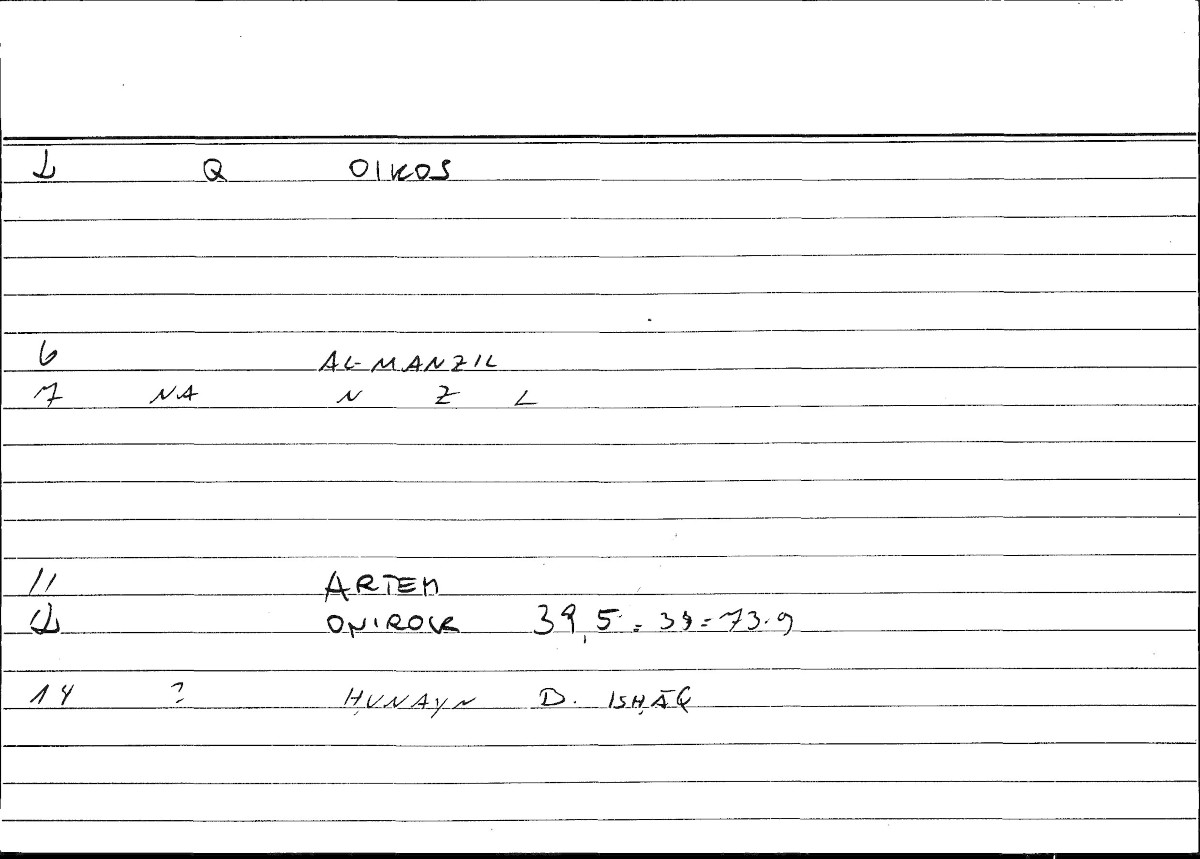 1 Q OIKOS
6 AL-MANZIL
7 NA N Z L
11 ARTEM
12 ONIROCR 39,5 = 39 = 73.9
14 ? ḤUNAYN B. ISḤĀQ